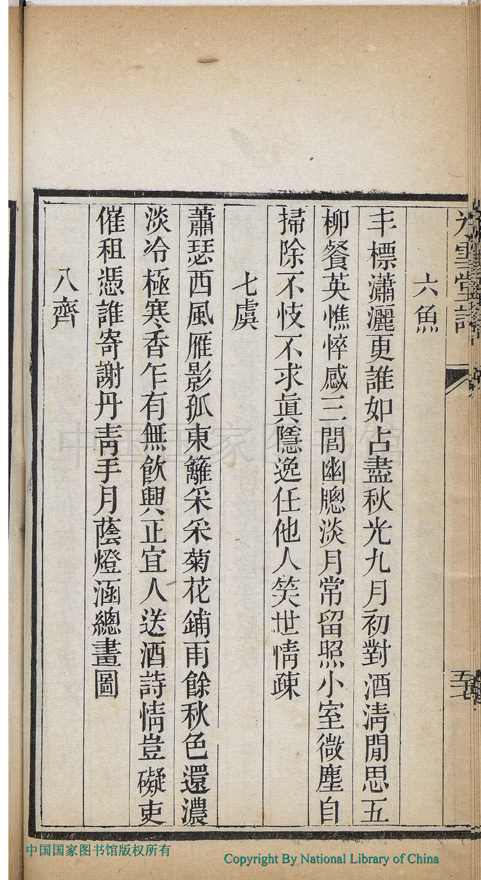 六魚
丰標瀟灑更誰如占盡秋光九月初對酒清閒思五
柳餐英憔悴感三閭幽牕淡月常留照小室微塵自
掃除不忮不求眞隱逸任他人笑世情疎
七虞
蕭瑟西風雁影孤東籬采采菊花鋪雨餘秋色還濃
淡冷極寒香乍有無飮興正宜人送酒詩情豈礙吏
催租憑誰寄謝丹靑手月蔭燈涵總畫圖
八齊
雪堂詩
中国国家图书馆
中国国家图书馆版权所有
Copyright By National Library of China